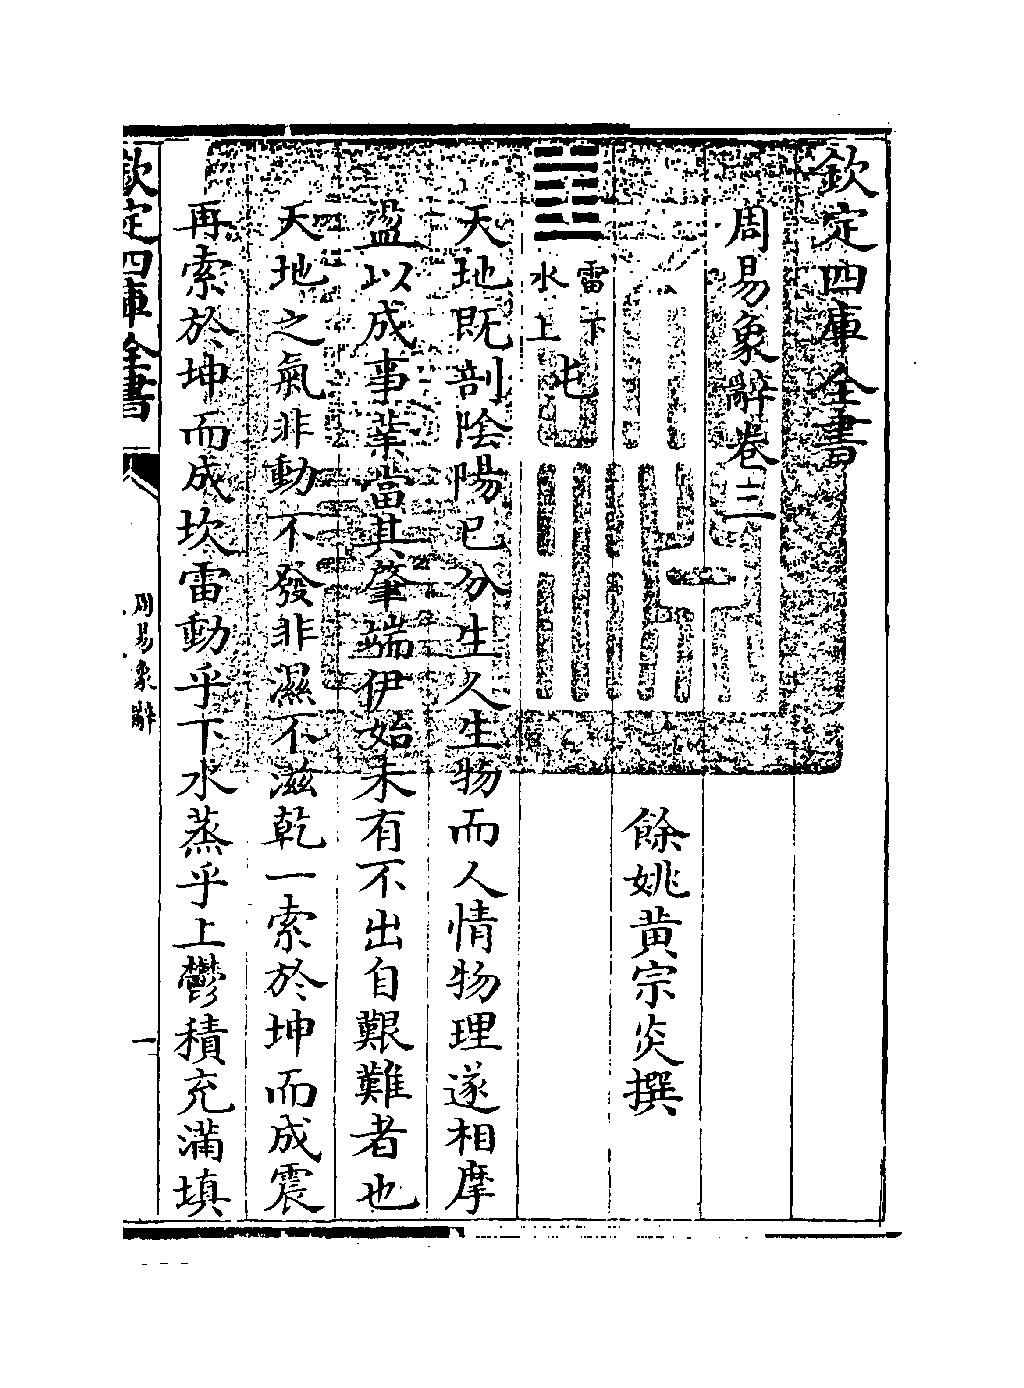 欽定四庫全書
周易象辭卷三
餘姚黄宗炎撰
雷下
水上
屯
天地既剖陰陽已分生人生物而人情物理遂相摩
盪以成事業當其肇端伊始未有不出自艱難者也
天地之氣非動不發非濕不滋乾一索於坤而成震
再索於坤而成坎雷動乎下水蒸乎上鬱積充滿填
欽定四庫全書
周易象辭
一